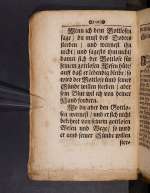 Wenn ich dem Gottlosen
sage / du must des Todes
sterben / und warnest ihn
nicht / und sagest ihm nicht
damit sich der Gottlose für
seinem gottlosen Wesen hüte /
auf daß er lebendig bleibe / so
wird der Gottlose umb seiner
Sünde willen sterben / aber
sein Blut wil ich von deiner
Hand fordern.
Wo du aber den Gottlo-
sen warnest / und er sich nicht
bekehret von seinem gottlosen
Wesen und Wege / so wird
er umb seiner Sünde willen
ster-